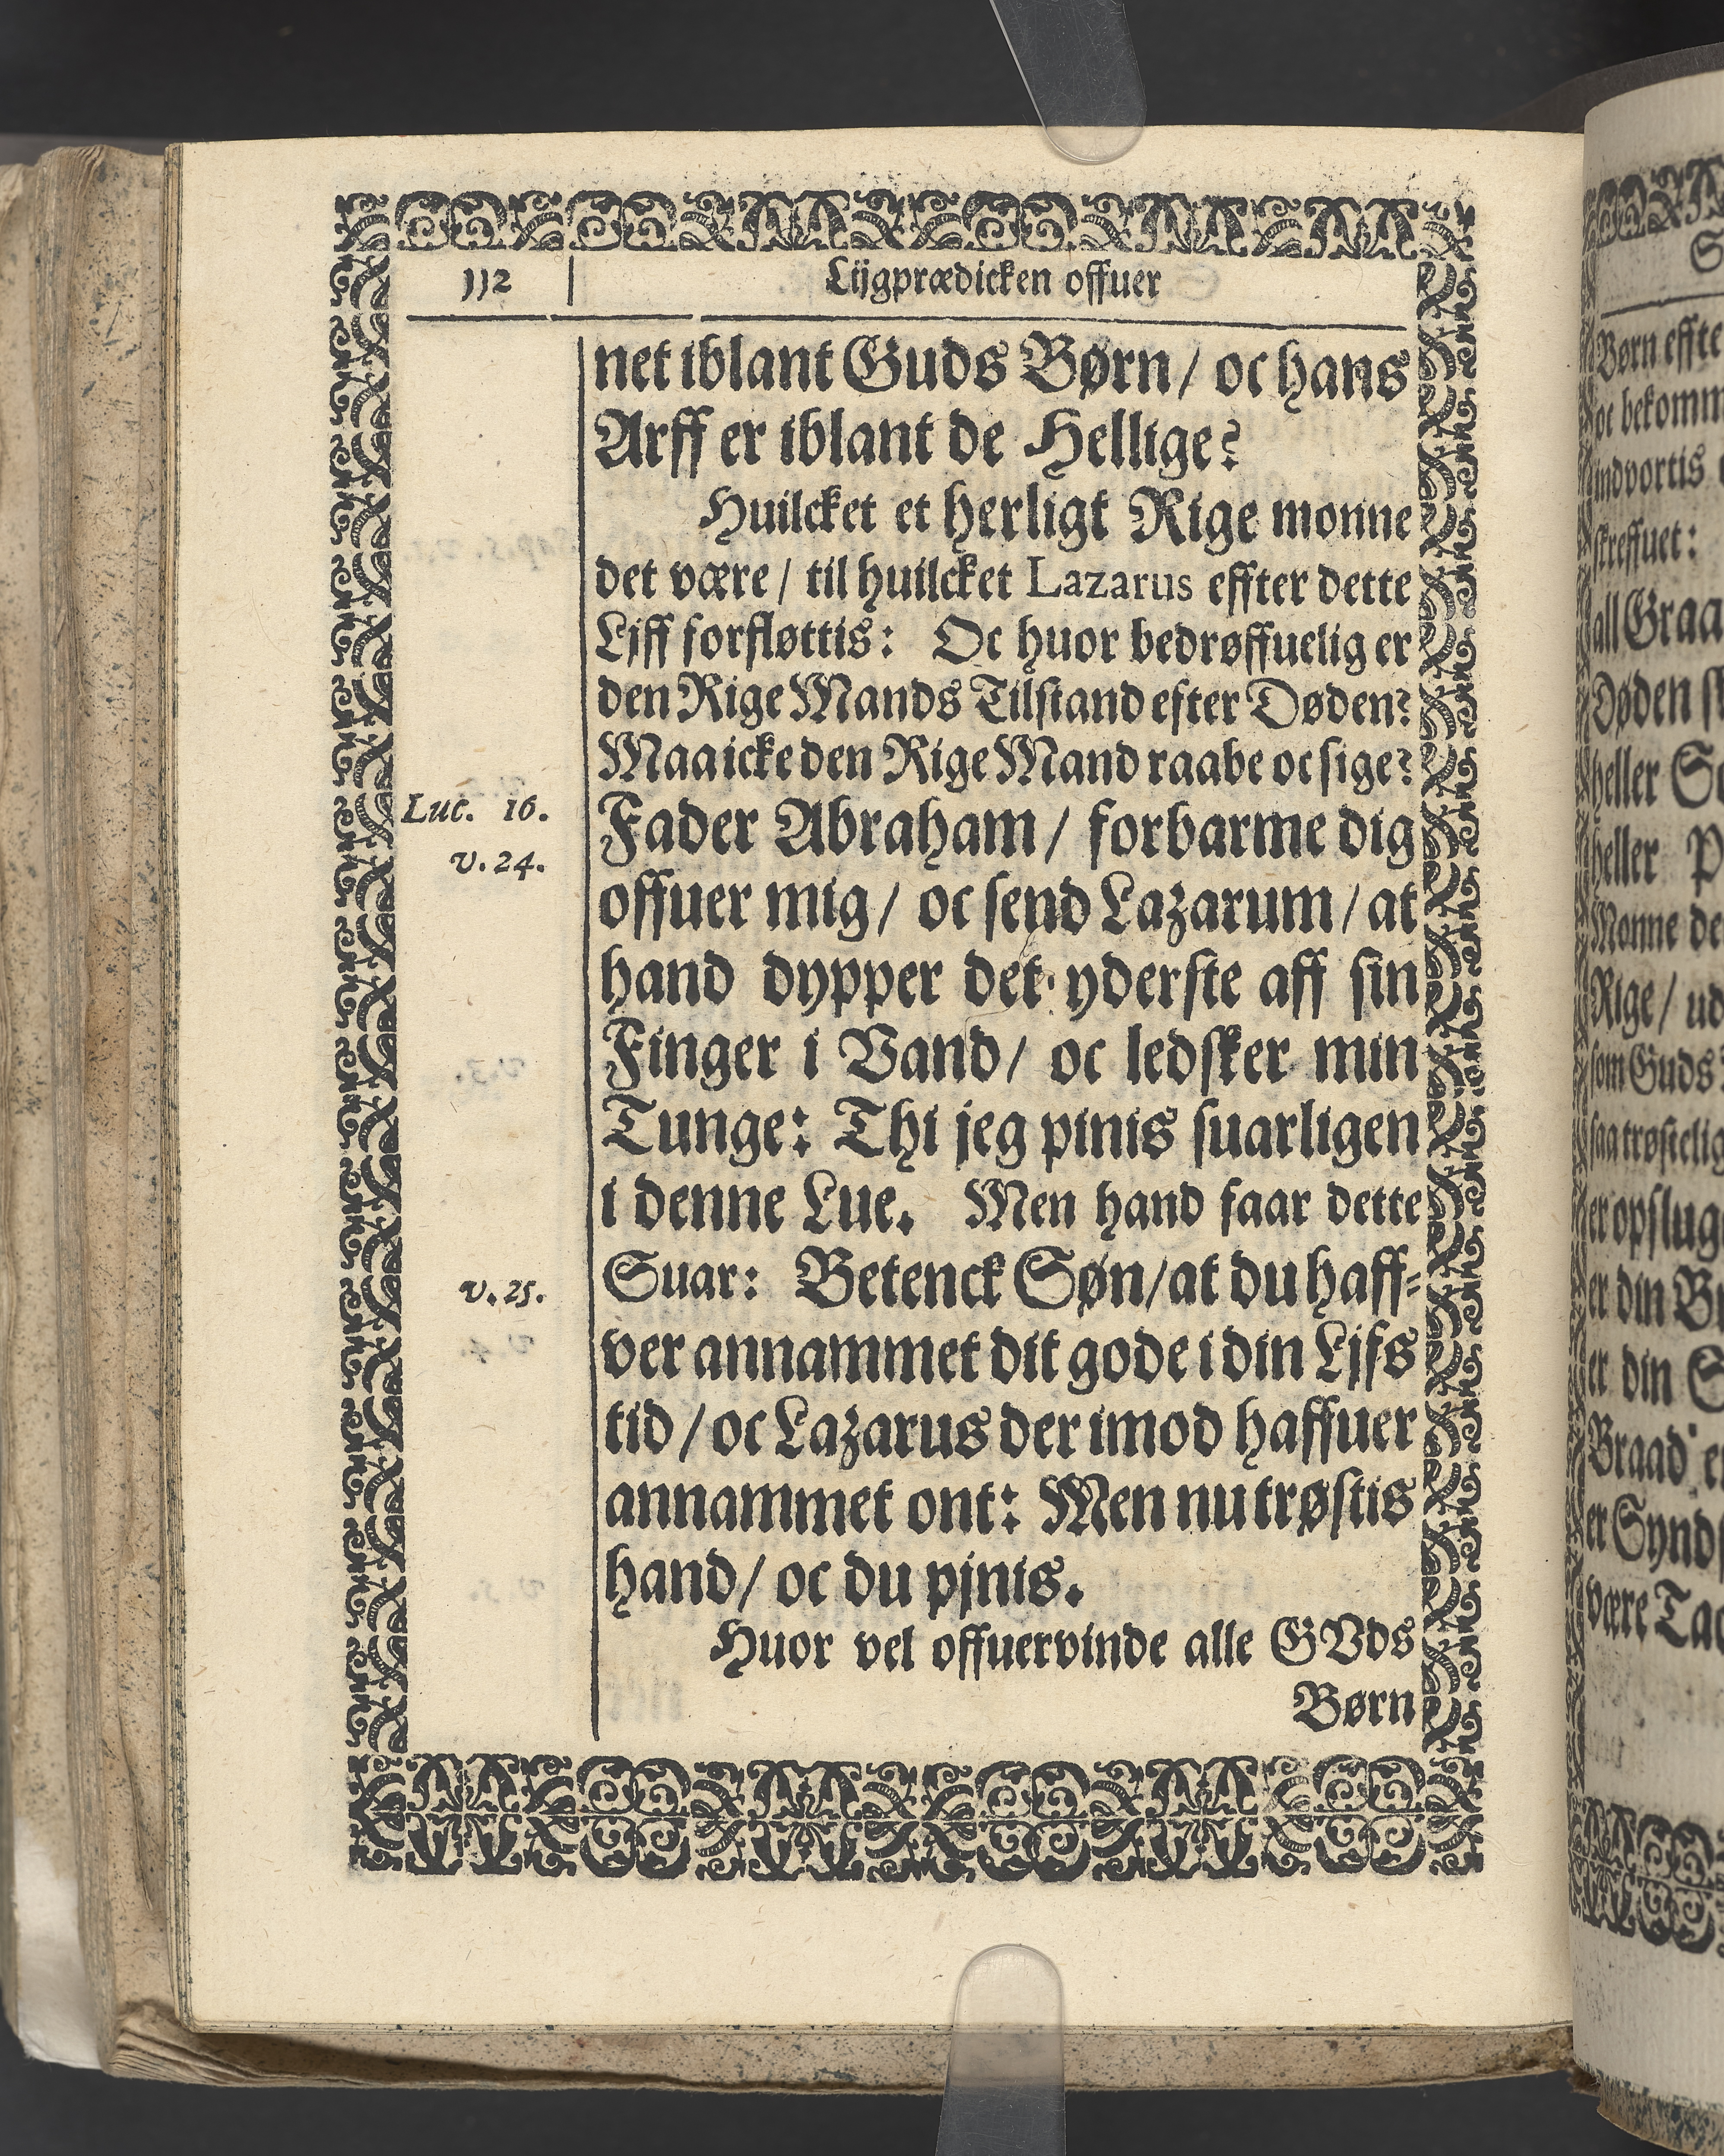 112
Lijgprædicken offuer
net iblant Guds Børn / oc hans
Arff er iblant de Hellige?
Huilcket et herligt Rige monne
det være / til huilcket Lazarus effter dette
Ljff forfløttis: Oc huor bedrøffuelig er
den Rige Mands Tilstand efter Døden?
Maa icke den Rige Mand raabe oc sige?
Luc. 16.
v. 24.
Fader Abraham / forbarme dig
offuer mig / oc send Lazarum / at
hand dypper det yderste aff sin
Finger i Vand / oc ledsker min
Tunge: Thi jeg pinis suarligen
i denne Lue. Men hand faar dette
v. 25.
Suar: Betenck Søn / at du haff-
ver annammet dit gode i din Ljfs
tid / oc Lazarus der imod haffuer
annammet ont: Men nu trøstis
hand / oc du pjnis.
Huor vel offuervinde alle GVds
Børn
Børn effte
oc bekomm
indvortis
skreffuet:
all Graa
Døden
heller
heller
Monne de
Rige / ud
som Guds
saa trøstelig
er opslug
er din
er din
Braad
er Synd
være